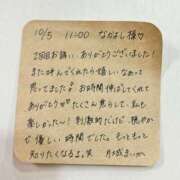 10/5 11:00 なかよし様♡
2回目お誘い ありがとうございました!
また呼んでくれたら嬉しいなぁって
思ってました♡ お時間伸ばしてくれて
ありがとう♡♡ たくさん癒らして、私も
楽しかった〜! 刺激的だけど 穏やか
で優しい時間でした。もっともっと
知りたくなるよ。笑